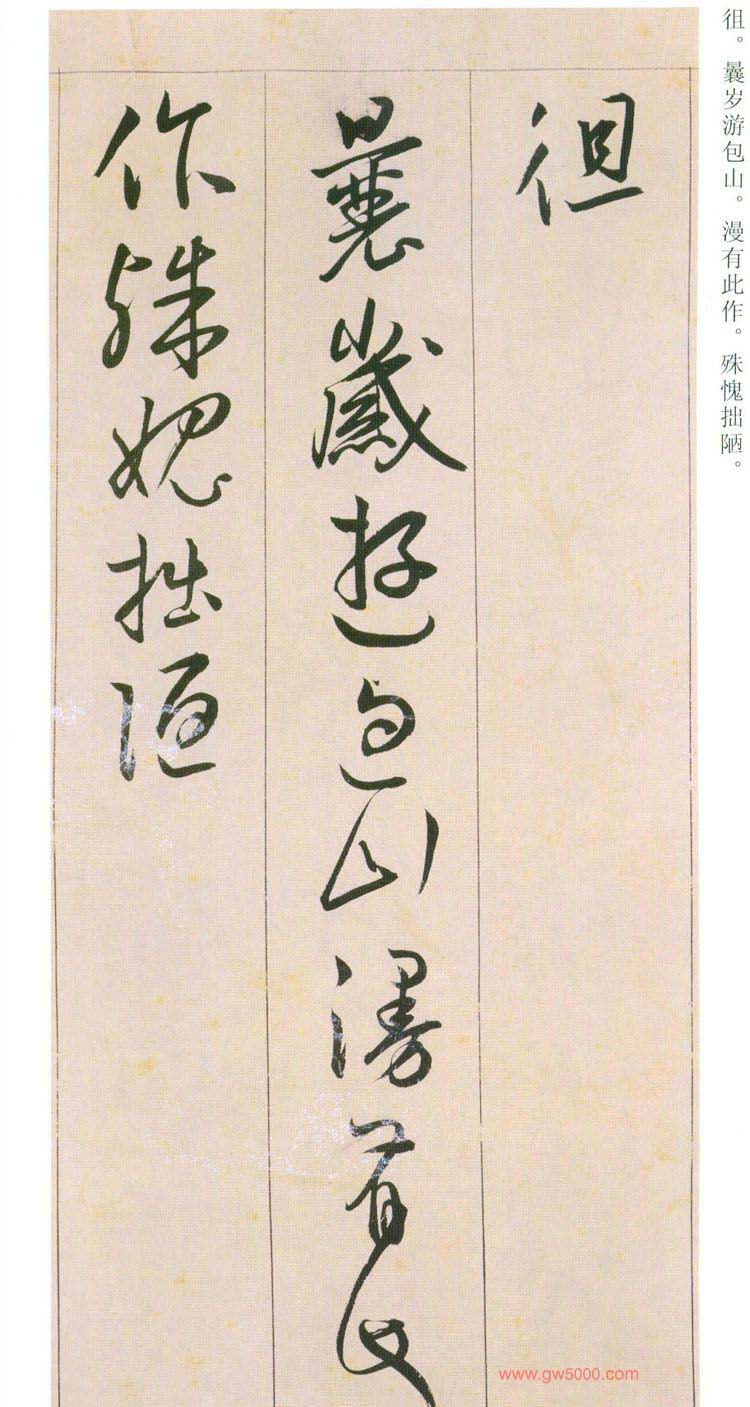 徂。曩岁游包山。漫有此作。殊愧拙陋。
徂
曩歲遊包山漫有此
作殊媿拙陋
www.gw5000.com